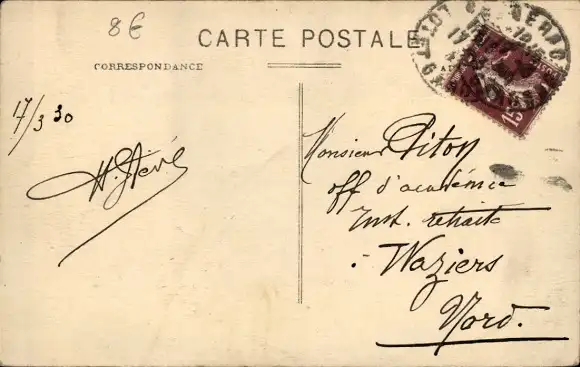 8€
CARTE POSTALE
CORRESPONDANCE
17/3 30
Monsieur Piton
off d'académie
Inst. retraité
Waziers
Nord.
15